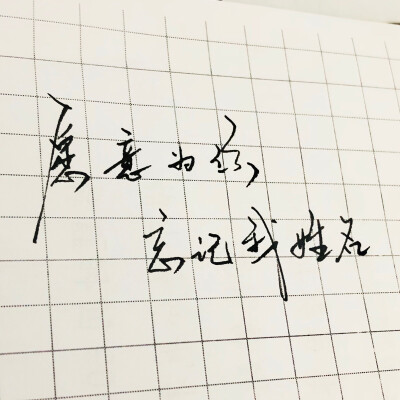 愿意为你,
忘记我姓名